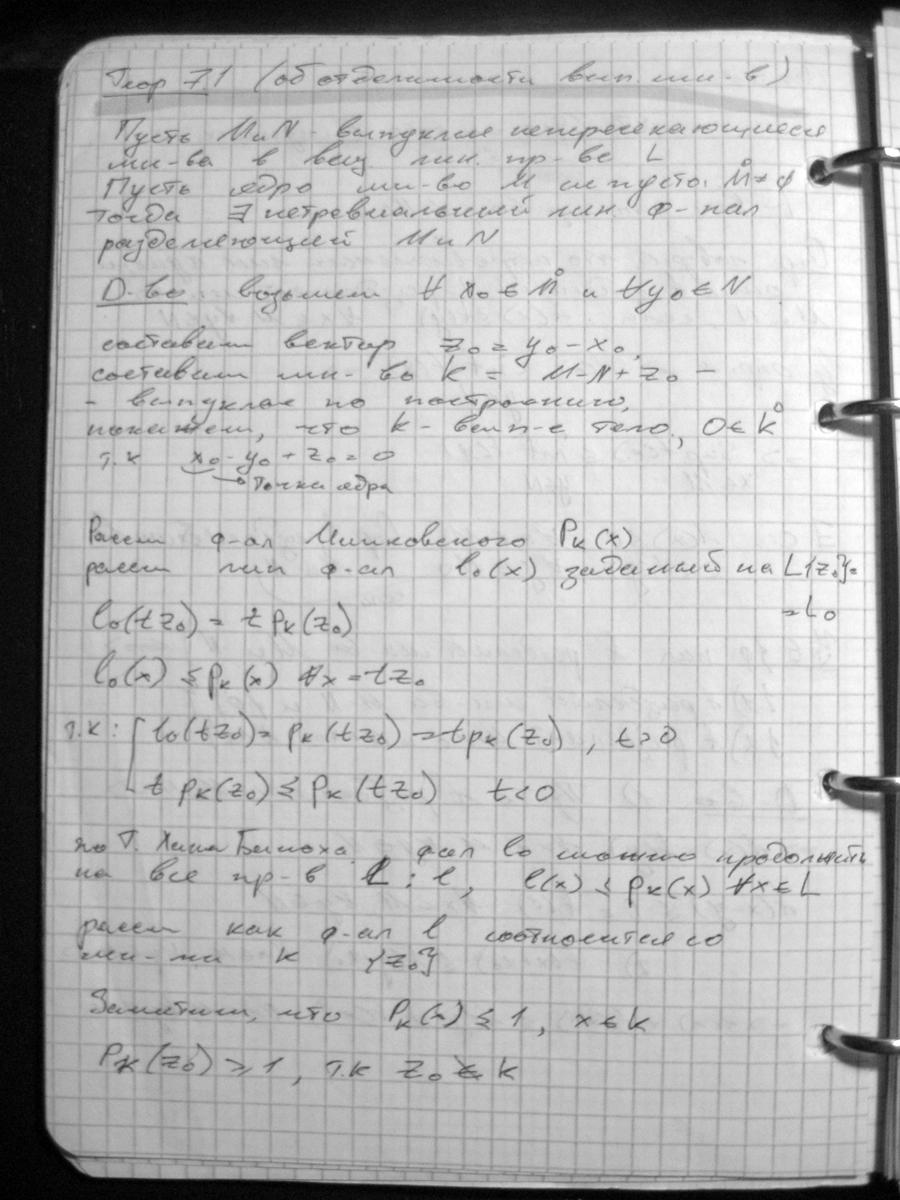 Теор 7.1 (об отделимости вып. мн-в)
Пусть M и N - выпуклые непересекающиеся
мн-ва в вещ лин. пр-ве L
Пусть ядро мн-во M не пусто. M̊ ≠ ∅
тогда ∃ нетревиальный лин. ф-нал
разделяющий M и N
D-во возьмем ∀ x₀ ∈ M̊ и ∀y₀ ∈ N
составим вектор z₀ = y₀ - x₀,
составим мн-во K = M-N+z₀ -
- выпуклое по построению,
покажем, что K - вып-е тело, 0 ∈ K̊
т.к x₀ - y₀ + z₀ = 0
точки ядра
Рассм ф-ал Минковского Pₖ(x)
рассм лин ф-ал l₀(x) заданный на L{z₀}=
= L₀
l₀(tz₀) = t pₖ(z₀)
l₀(x) ≤ pₖ(x) ∀x = tz₀
т.к: [ l₀(tz₀) = pₖ(tz₀) = tpₖ(z₀), t>0
t pₖ(z₀) ≤ pₖ(tz₀) t<0
по Т. Хана Банаха фал l₀ можно продолжить
на все пр-в L : l, l(x) ≤ pₖ(x) ∀x ∈ L
рассм как ф-ал l соотносится со
мн-ми K {z₀}
Заметим, что Pₖ(x) ≤ 1, x ∈ K
Pₖ(z₀) ≥ 1, т.к z₀ ∉ K